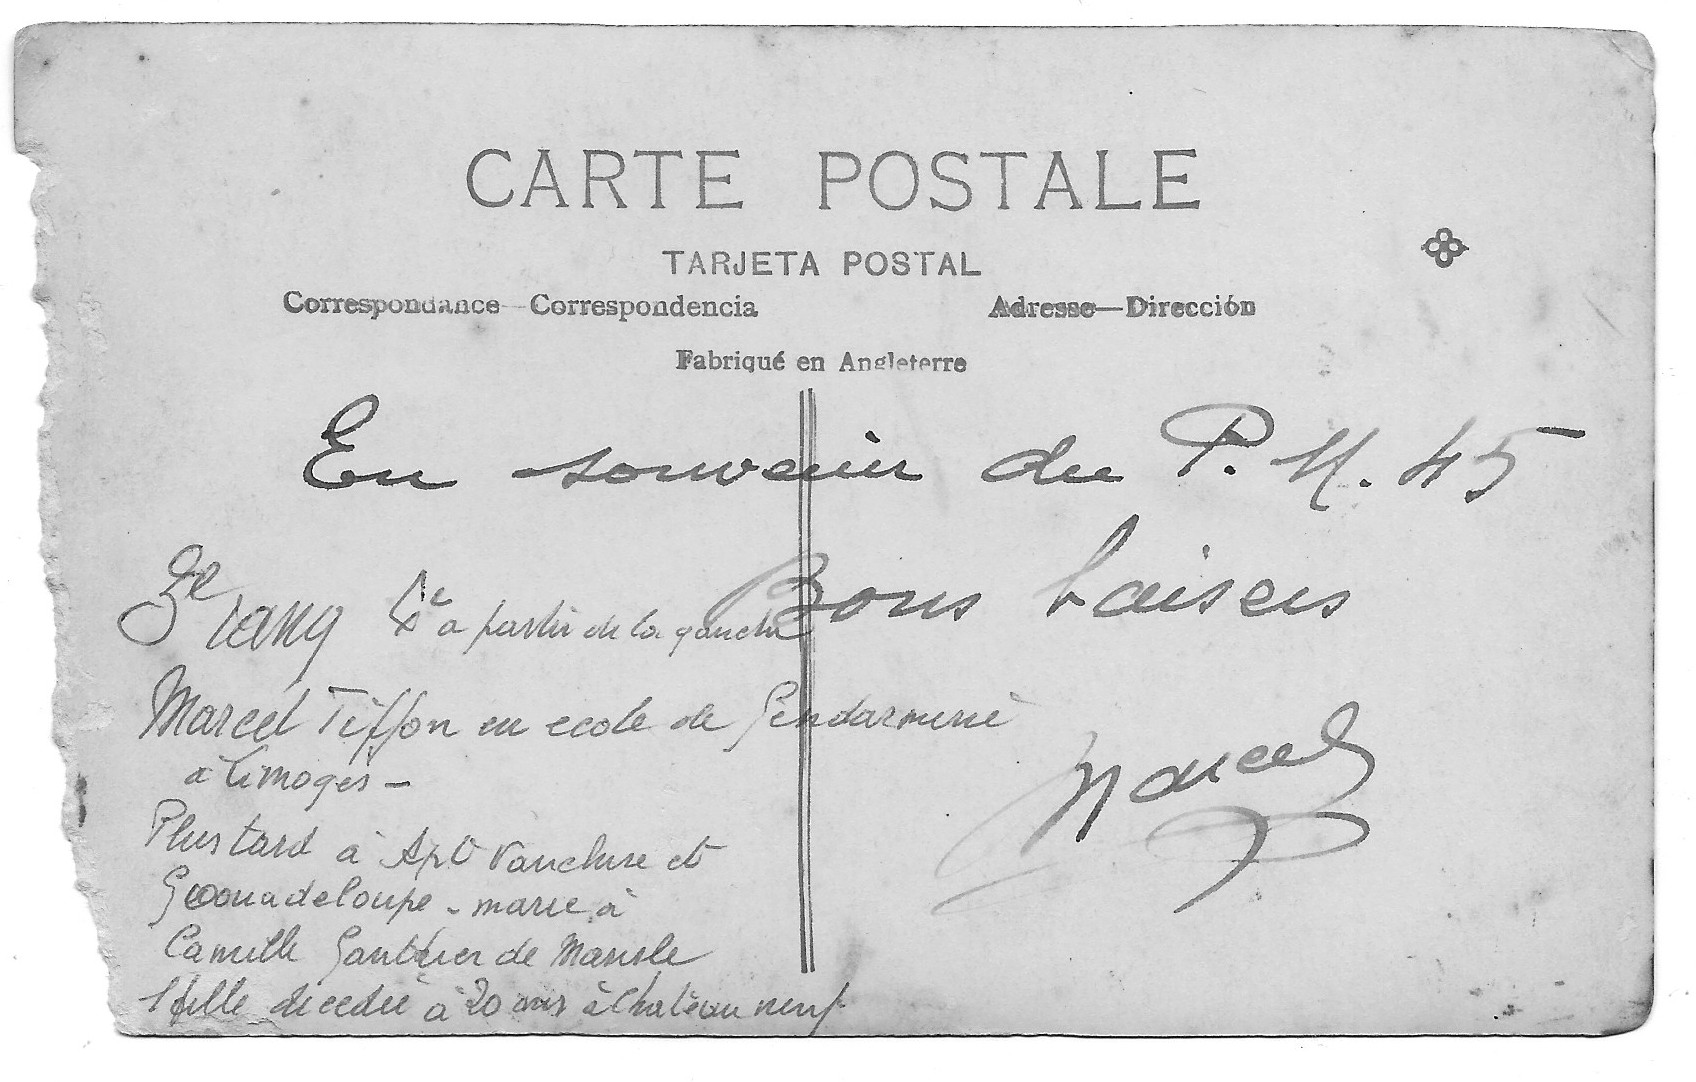 CARTE POSTALE
TARJETA POSTAL
Correspondance—Correspondencia Adresse—Dirección
Fabriqué en Angleterre
En souvenir du P. M. 45
Bons baisers
Marcel
3e rang à partir de la gauche
Marcel Tiffon en ecole de Gendarmerie
a Limoges —
Plus tard à Apt Vaucluse et
Gouadeloupe - marie à
Camille Gauthier de Mansle
1 fille decedée à 20 ans à Chateauneuf